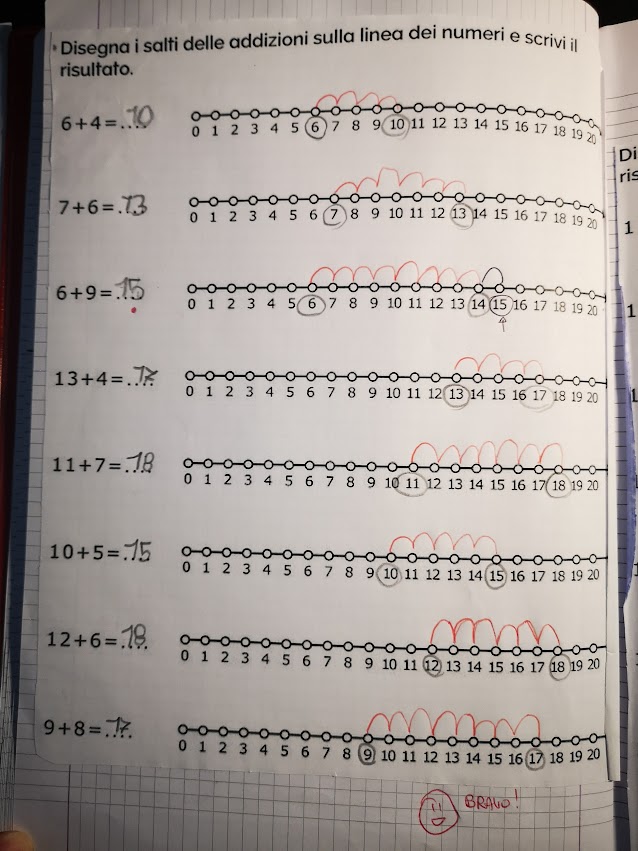 Disegna i salti delle addizioni sulla linea dei numeri e scrivi il
risultato.
6+4=....10
0 1 2 3 4 5 6 7 8 9 10 11 12 13 14 15 16 17 18 19 20
7+6=.13
0 1 2 3 4 5 6 7 8 9 10 11 12 13 14 15 16 17 18 19 20
6+9=..15
0 1 2 3 4 5 6 7 8 9 10 11 12 13 14 15 16 17 18 19 20
13+4=..17
0 1 2 3 4 5 6 7 8 9 10 11 12 13 14 15 16 17 18 19 20
11+7=..18
0 1 2 3 4 5 6 7 8 9 10 11 12 13 14 15 16 17 18 19 20
10+5=.15
0 1 2 3 4 5 6 7 8 9 10 11 12 13 14 15 16 17 18 19 20
12+6=.18.
0 1 2 3 4 5 6 7 8 9 10 11 12 13 14 15 16 17 18 19 20
9+8=..17.
0 1 2 3 4 5 6 7 8 9 10 11 12 13 14 15 16 17 18 19 20
BRAVO!
Di
ris
1
1